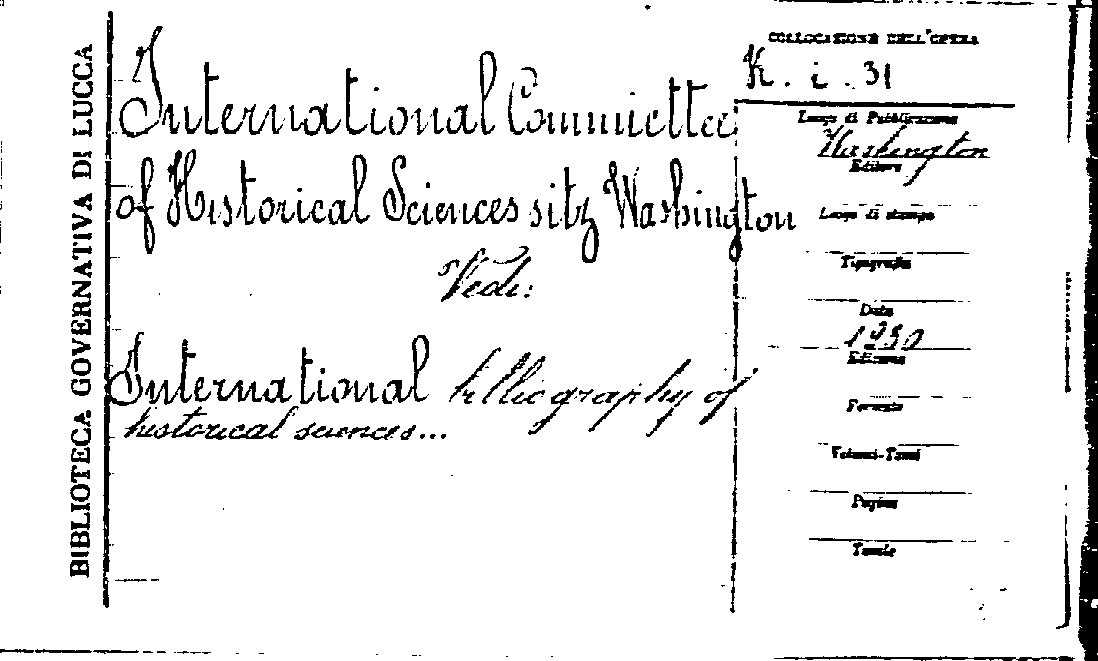 BIBLIOTECA GOVERNATIVA DI LUCCA
International Committee
of Historical Sciences sitz Washington
Vedi:
International bibliography of
historical sciences...
COLLOCAZIONE DELL'OPERA
K. i. 31
Luogo di Pubblicazione
Washington
Editore
Luogo di stampa
Tipografia
Data
1930
Edizione
Formato
Volumi-Tomi
Pagine
Tavole